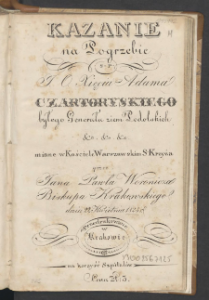 KAZANIE
na Pogrzebie
J. O. Xięcia Adama
CZARTORYSKIEGO
byłego Generała ziem Podolskich
&c. &c. &c.
miane w Kościele Warszawskim S. Krzyża
przez
Jana Pawła Woronicza
Biskupa Krakowskiego
w Krakowie
na korzyść Szpitalów